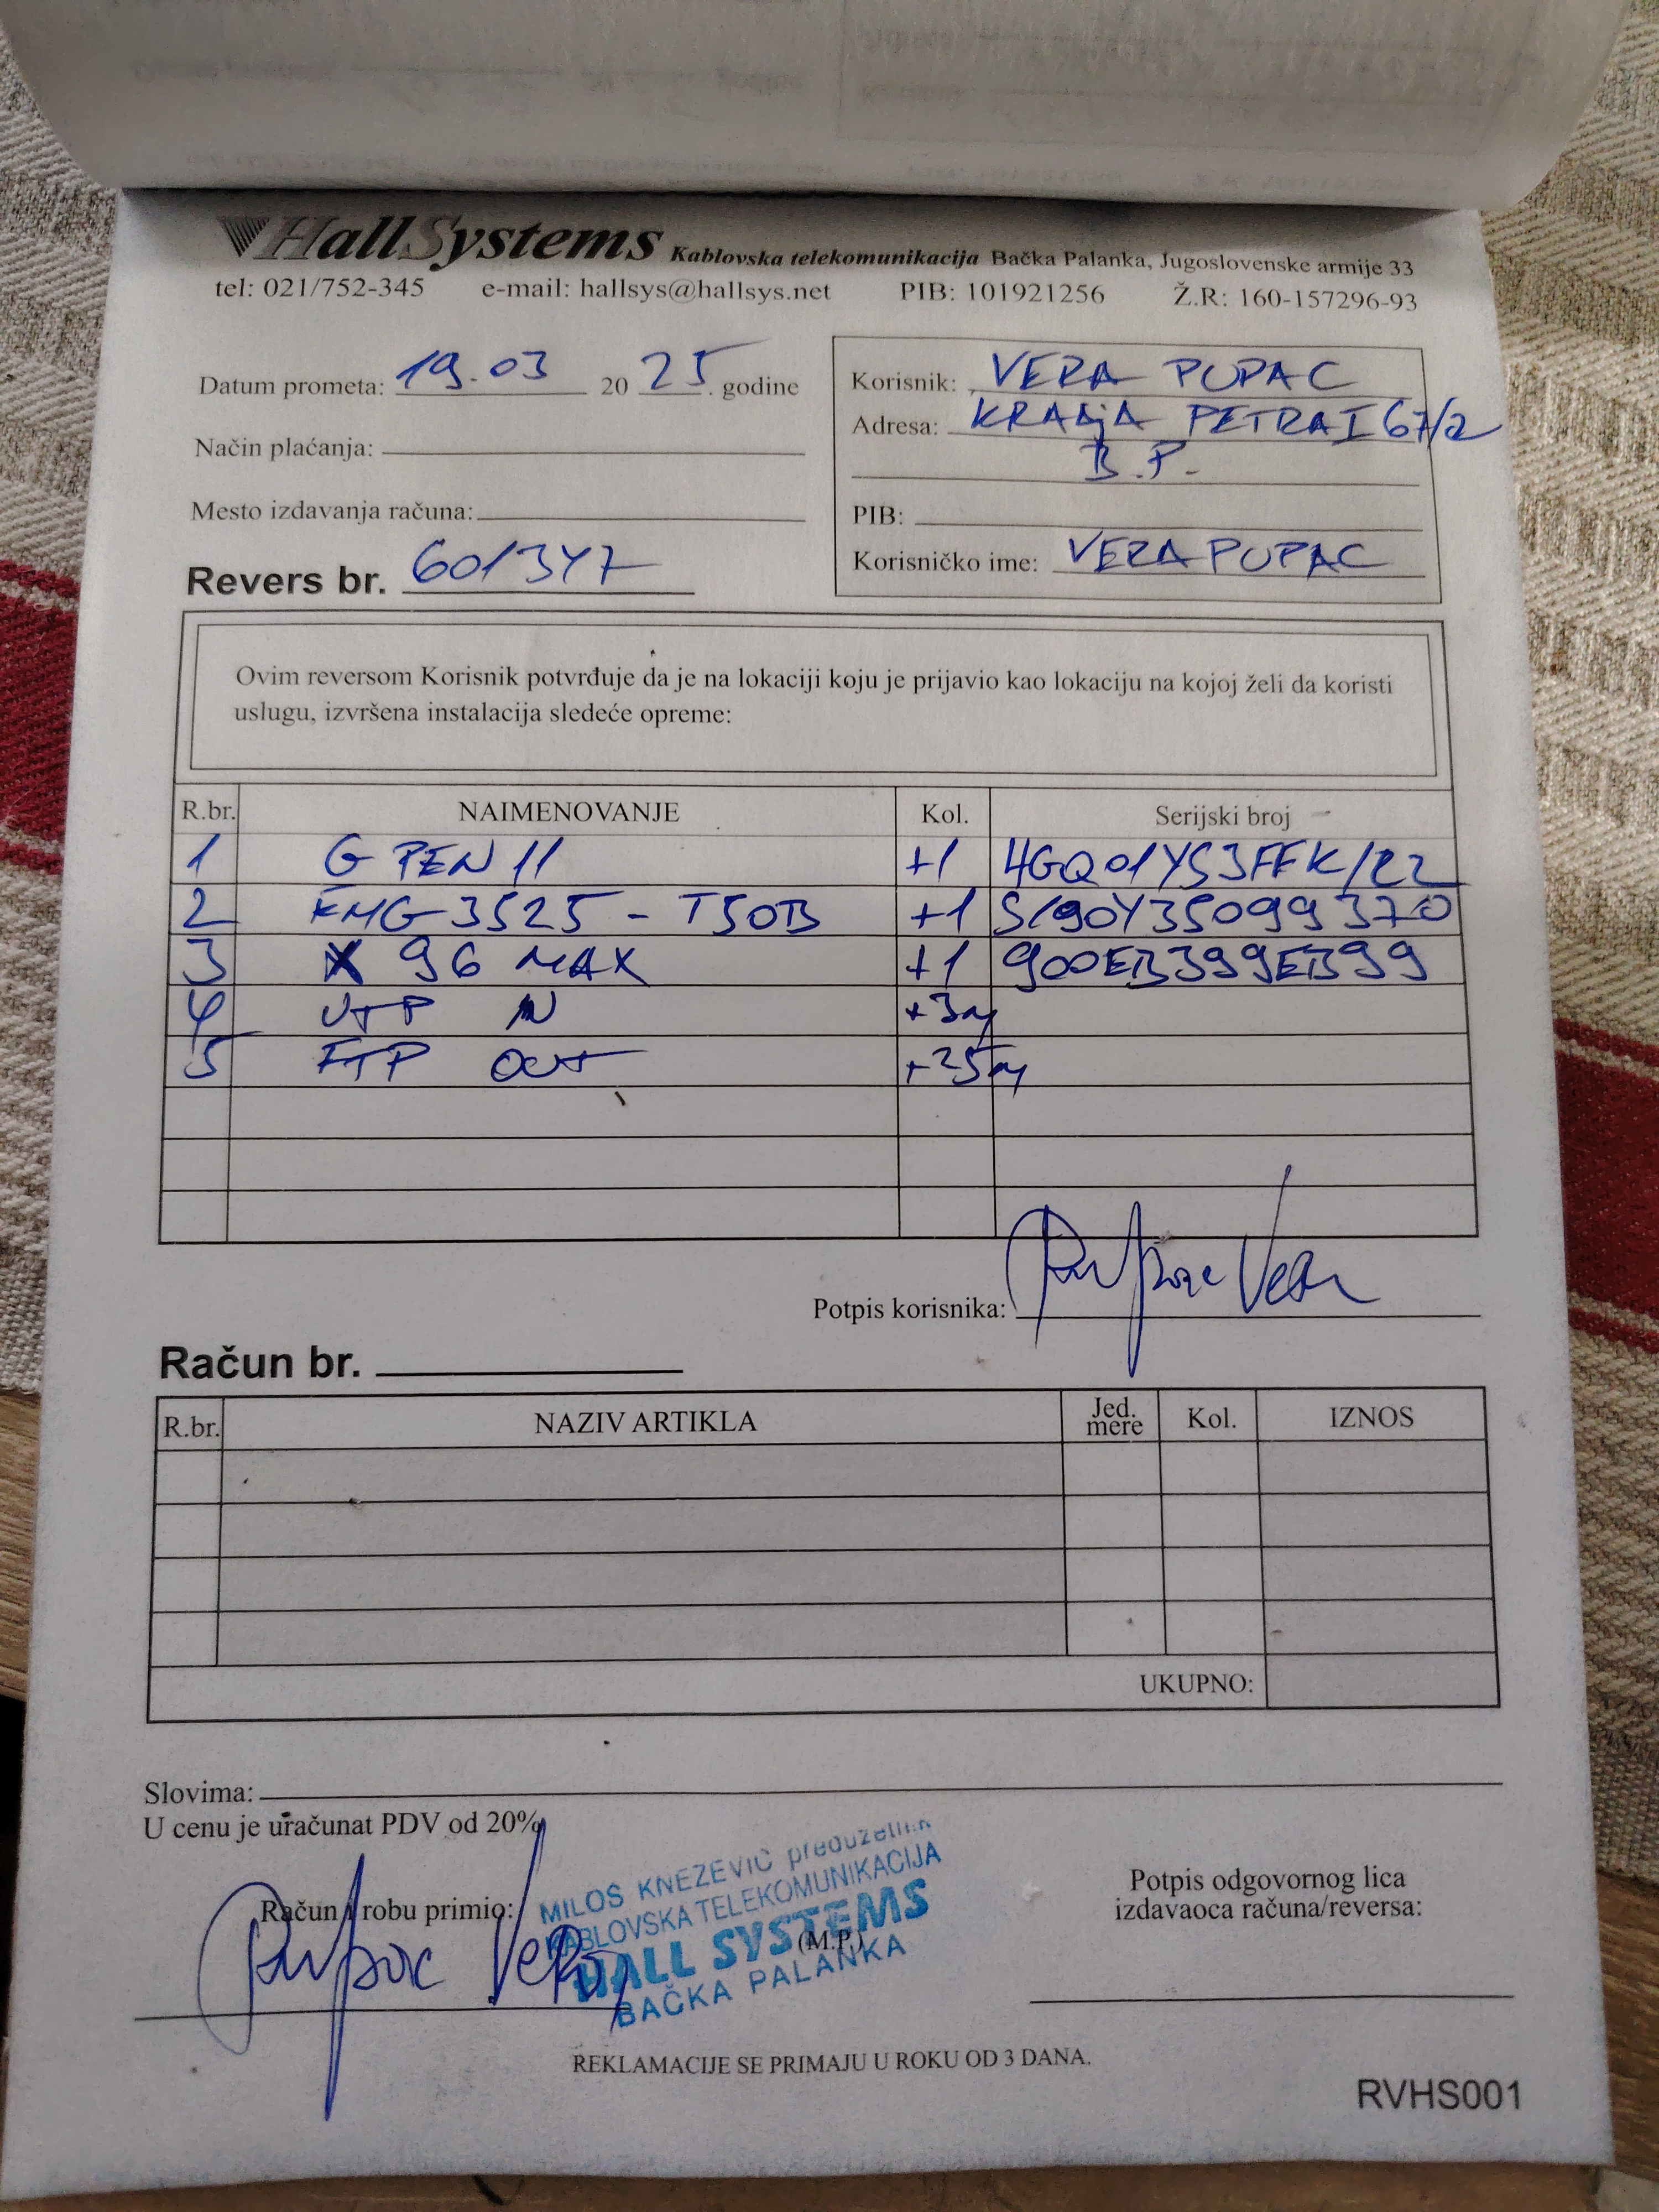 HallSystems Kablovska telekomunikacija Bačka Palanka, Jugoslovenske armije 33
tel: 021/752-345 e-mail: hallsys@hallsys.net PIB: 101921256 Ž.R: 160-157296-93
Datum prometa: 19.03 20 25. godine
Način plaćanja:
Mesto izdavanja računa:
Revers br. 601347
Korisnik: VERA PUPAC
Adresa: KRALJA PETRA I 67/2
B.P.
PIB:
Korisničko ime: VERAPUPAC
Ovim reversom Korisnik potvrđuje da je na lokaciji koju je prijavio kao lokaciju na kojoj želi da koristi
uslugu, izvršena instalacija sledeće opreme:
R.br. NAIMENOVANJE Kol. Serijski broj
1 G PEN 11 +1
2 EMG 3525 - T50B +1 S190Y35099370
3 X 96 MAX +1 900EB399EB99
4 UTP IN +3m
5 FTP OUT +25m
Potpis korisnika: Pupac Vera
Račun br.
R.br. NAZIV ARTIKLA Jed. mere Kol. IZNOS
UKUPNO:
Slovima:
U cenu je uračunat PDV od 20%
Račun i robu primio:
Pupac Vera
MILOŠ KNEŽEVIĆ preduzetnik
KABLOVSKA TELEKOMUNIKACIJA
HALL SYSTEMS
(M.P.)
BAČKA PALANKA
Potpis odgovornog lica
izdavaoca računa/reversa:
REKLAMACIJE SE PRIMAJU U ROKU OD 3 DANA.
RVHS001